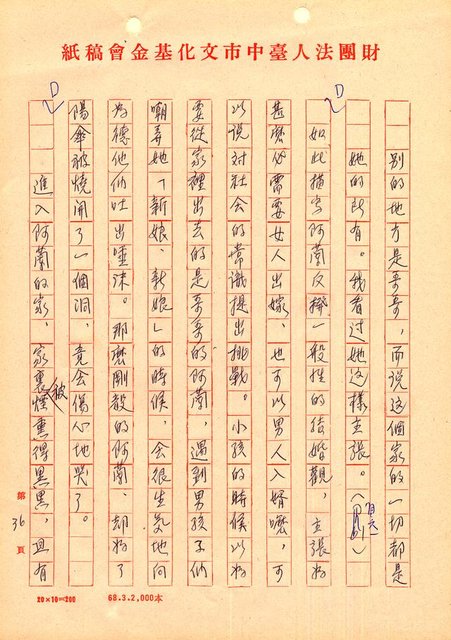 財團法人臺中市文化基金會稿紙
別的地方是哥哥，而說這個家的一切都是
她的所有。我看過她這樣主張。
如此描寫阿蘭反撥一般性的結婚觀，主張為
甚麼必需要女人出嫁，也可以男人入婿嘛，可
以說對社会的常識提出挑戰。小孩的時候以為
要從家裡出去的是哥哥的阿蘭，遇到男孩子們
嘲弄她「新娘、新娘」的時候，会很生氣地向
為德他们吐出唾沫。那麼剛毅的阿蘭，却為了
陽傘被燒開了一個洞，竟会傷心地哭了。
進入阿蘭的家，家裏被煙熏得黑黑，且有
第36頁
20×10=200 68.3.2,000本